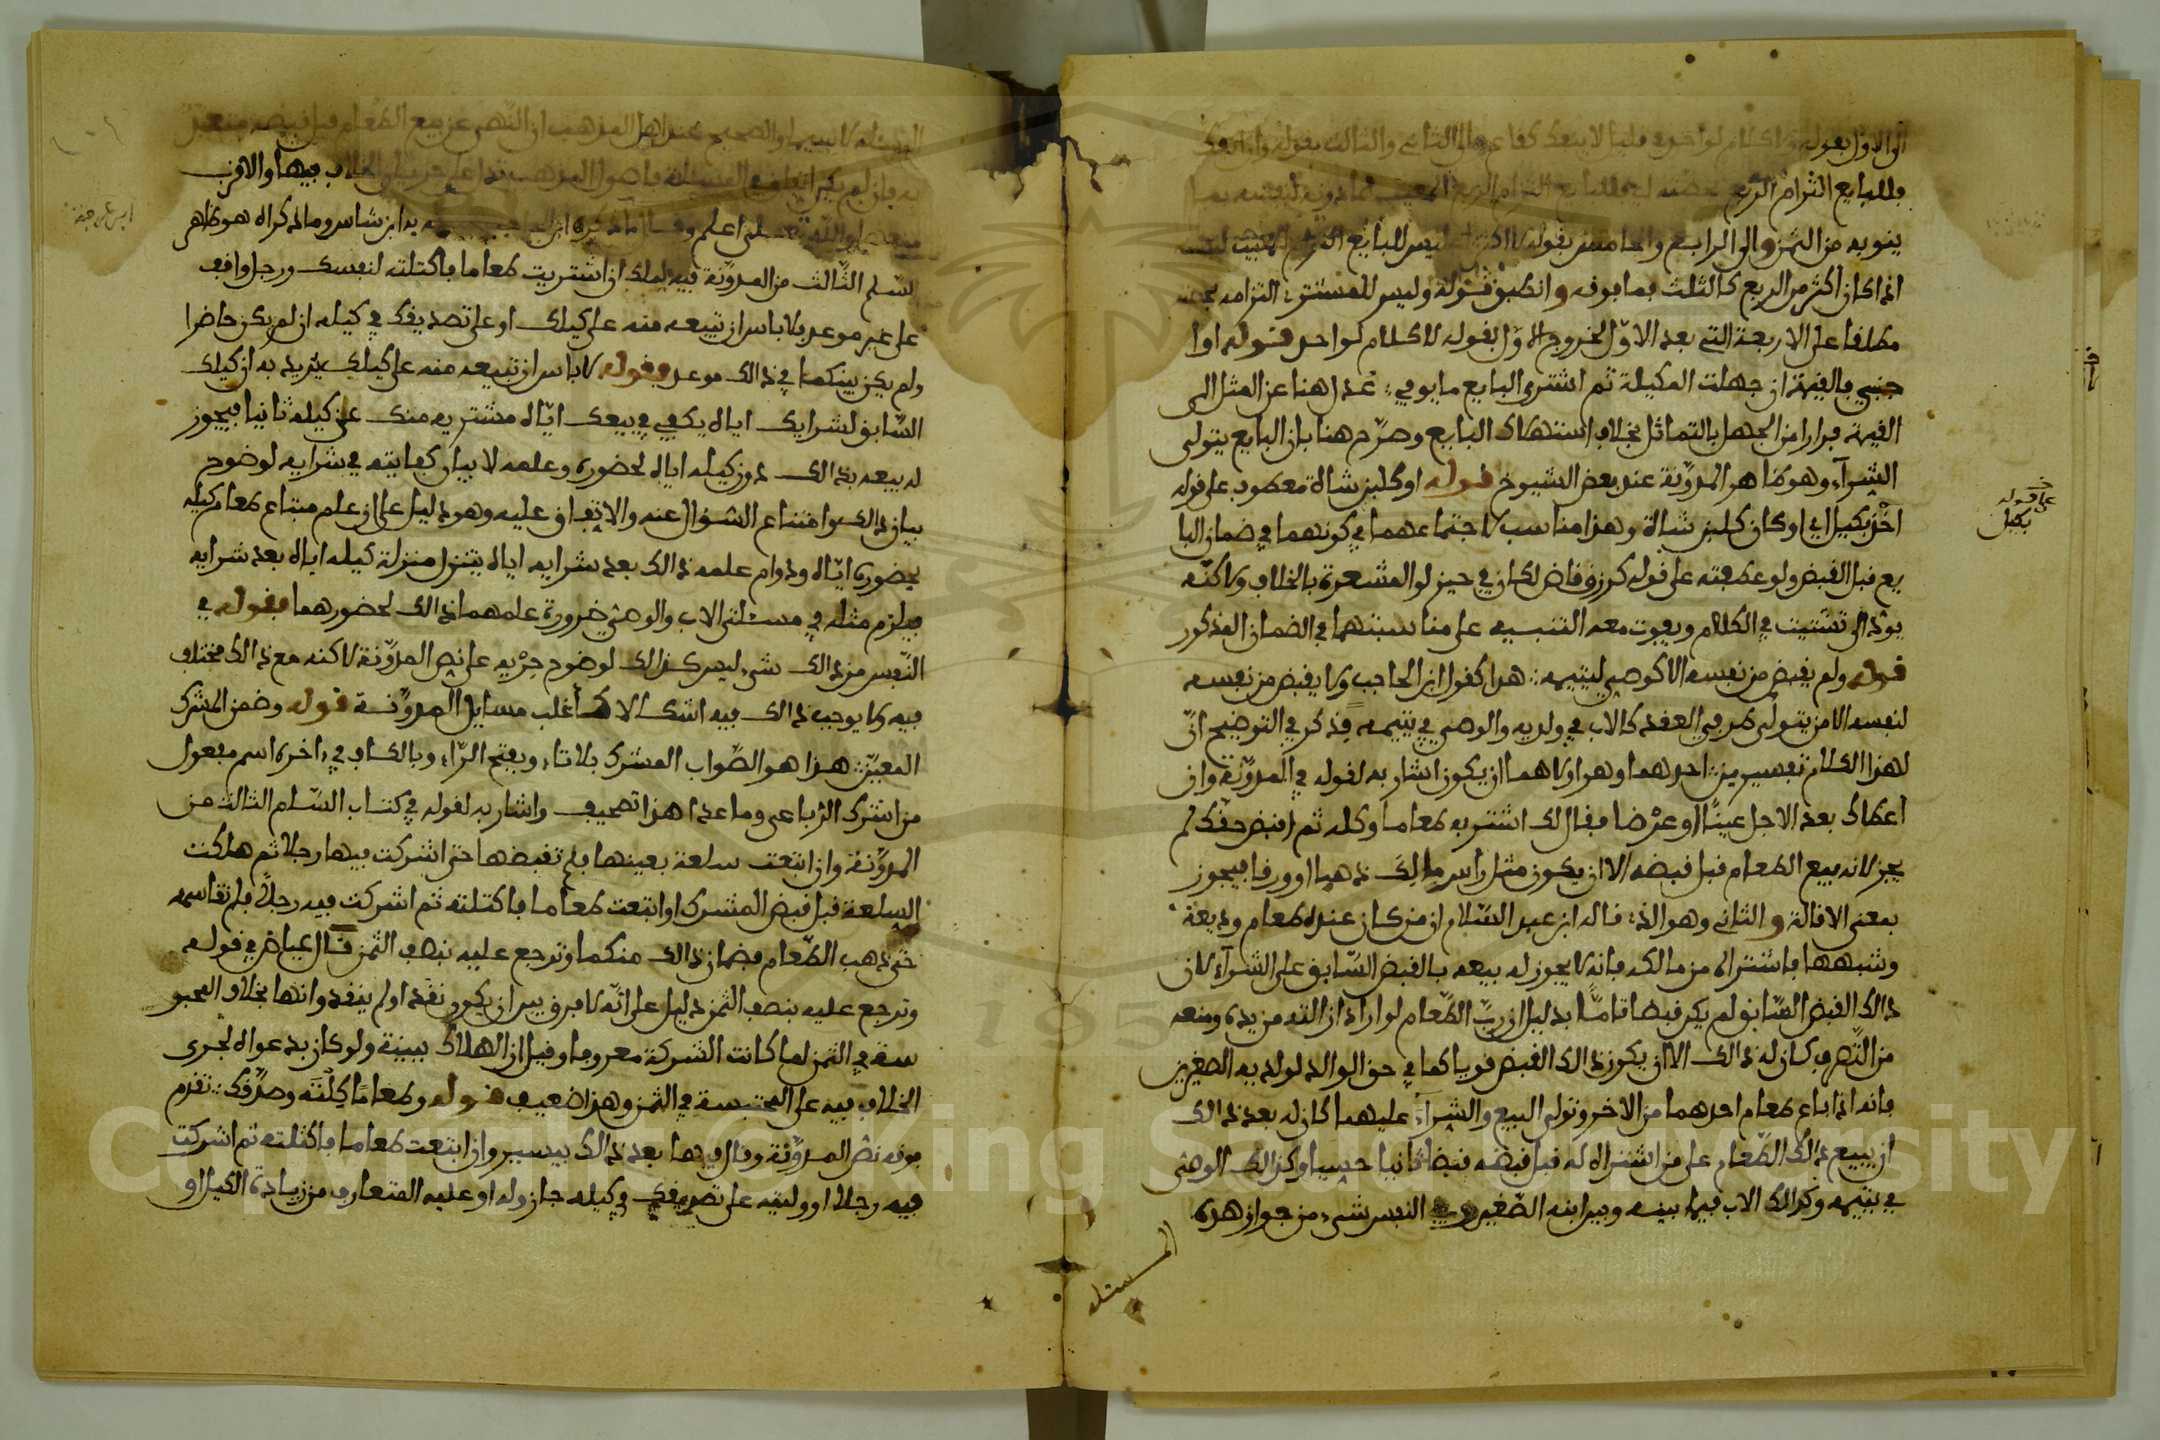 الى الاول بقوله ولا كلام لواحد في قليل لا ينفك كقاع والى الثاني والثالث بقوله وان انفك
فللبايع التزام الربع بحصته
ينويه من الثمن والى الرابع والخامس بقوله لا اكثر وليس للبايع التزام
اذا كان أكثر من الربع كالثلث فما فوقه وانطبق قوله وليس للمشتري التزامه بحصته
مطلقا على الاربعة التي بعد الاول لخروج الاول بقوله لا كلام لواحد قوله او ا
جنبي فالقيمة ان جهلت المكيلة ثم اشترى البايع ما يوفي عدل هنا عن المثل الى
القيمة فرارا من الجهل بالتماثل بخلاف استهلاك البايع وصرح هنا بان البايع يتولى
الشرآء وهو ظاهر المدونة عند بعض الشيوخ قوله او كلبن شاة معطوف على قوله
اخذ بكيل اي او كان كلبن شاة وهذا مناسب لاجتماعهما في كونهما في ضمان البا
يع قبل القبض ولو عطفته على قوله كرزق قاض لكان في حيز لو المشعرة بالخلاف ولاكنه
يؤدي الى تشتيت في الكلام ويفوت معه التنبيه على مناسبتهما في الضمان المذكور
قوله ولم يقبض من نفسه الا كوصي ليتيمه هذا كقول ابن الحاجب ولا يقبض من نفسه
لنفسه الا من يتولى طرفي العقد كالاب في ولديه والوصي في يتيمه فذكر في التوضيح ان
لهذا الكلام تفسيرين احدهما وهو اولاهما ان يكون اشار به لقوله في المدونة وان
اعطاك بعد الاجل عينا او عرضا فقال لك اشتر به طعاما وكله ثم اقبض حقك لم
يجز لانه بيع الطعام قبل قبضه الا ان يكون مثل راس مالك ذهبا او ورقا فيجوز
بمعنى الاقالة والثاني وهو الذي قاله ابن عبد السلام ان من كان عنده طعام وديعة
وشبهها فاشتراه من مالكه فانه لا يجوز له بيعه بالقبض السابق على الشرآء لان
ذالك القبض السابق لم يكن قبضا تاما بدليل ان رب الطعام لو اراد ازالته من يده ومنعه
من التصرف كان له ذالك الا ان يكون ذالك القبض قويا كما في حق الوالد لولديه الصغيرين
فانه اذا باع طعام احدهما من الاخر وتولى البيع والشراء عليهما كان له بعد ذالك
ان يبيع ذالك الطعام على من اشتراه له قبل قبضه قبضا ثانيا حسيا وكذالك الوصي
في يتيمه وكذالك الاب فيما بينه وبين ابنه الصغير وفي النفس شيء من جواز هذه
المسئلة
على قوله بكيل
المسئلة لا سيما والصحيح عند اهل المذهب ان النهي عن بيع الطعام قبل قبضه متعبد
به فان لم يكن اتفاق في المسئلة فاصول المذهب تدل على جريان الخلاف فيها والاقرب
منعها والله تعلى اعلم وما ذكره ابن الحاجب به ابن شاس وما ذكراه هو ظاهر
السلم الثالث من المدونة فيه لملك ان اشتريت طعاما فاكتلته لنفسك ورجل واقف
على غير موعد فلا باس ان تبيعه منه على كيلك او على تصديقك في كيله ان لم يكن حاضرا
ولم يكن بينكما في ذالك موعد فقوله لا باس ان تبيعه منه على كيلك يريد به ان كيلك
السابق لشرايك اياه يكفي في بيعك اياه مشتريه منك عن كيله ثانيا فيجوز
له بيعه بذالك دون كيله اياه لحضوره وعلمه لا بيان كفايته في شرايه لوضوح
بيان ذالك وامتناع السؤال عنه والاتفاق عليه وهو دليل على ان علم مبتاع طعام كيله
بحضوره اياه ودوام علمه ذالك بعد شرايه اياه يتنزل منزلة كيله اياه بعد شرايه
فيلزم مثله في مسئلتي الاب والوصي ضرورة علمهما ذالك لحضورهما فقوله في
النفس من ذالك شيء ليس كذالك لوضوح جريه على نص المدونة لاكنه مع ذالك مختلف
فيه ولا يوجب ذالك فيه اشكالا كأغلب مسايل المدونة قوله وضمن المشرك
المعين هذا هو الصواب المشرك بلا تاء وبفتح الراء وبالكاف في اخره اسم مفعول
من اشرك الرباعي وما عدا هذا تصحيف واشار به لقوله في كتاب السلم الثالث من
المدونة وان ابتعت سلعة بعينها فلم تقبضها حتى اشركت فيها رجلا ثم هلكت
السلعة قبل قبض المشرك او ابتعت طعاما فاكتلته ثم اشركت فيه رجلا فلم تقاسمه
حتى ذهب الطعام فضمان ذالك منكما وترجع عليه بنصف الثمن قال عياض في قوله
وترجع عليه بنصف الثمن دليل على انه لا فرق بين ان يكون نقد او لم ينقد وانها بخلاف المحبو
سة في الثمن لما كانت الشركة معروفا وقيل ان الهلاك ببينة ولو كان بدعواه لجرى
الخلاف فيه على المحتبسة في الثمن وهذا ضعيف قوله وطعاما كلته وصدقك تقدم
فوقه نص المدونة وقال فيها بعد ذالك بيسير وان ابتعت طعاما فاكتلته ثم اشركت
فيه رجلا او وليته على تصديقك في كيله جاز وله او عليه المتعارف من زيادة الكيل او
ابن عرفة
Copyright © King Saud University